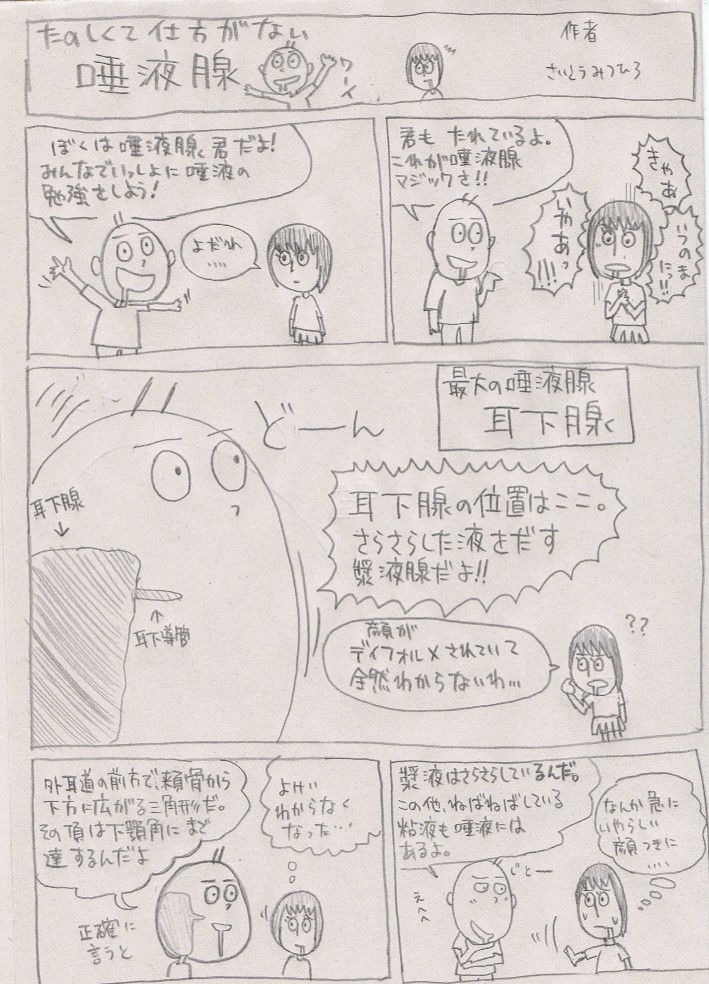 たのしくて仕方がない
唾液腺
ワーイ
作者
さいとうみつひろ
ぼくは唾液腺君だよ!
みんなでいっしょに唾液の
勉強をしよう!
よだれ
‥‥
君もたれているよ。
これが唾液腺
マジックさ!!
きゃあ
いつのま
にっ!!
いやあっ
!!!
どーん
最大の唾液腺
耳下腺
耳下腺
耳下導管
耳下腺の位置はここ。
さらさらした液をだす
漿液腺だよ!!
顔が
ディフォルメされていて
全然わからないわ…
??
外耳道の前方で、頬骨から
下方に広がる三角形だ。
その頂は下顎角にまで
達するんだよ
正確に
言うと
よけい
わからなく
なった…
漿液はさらさらしているんだ。
この他、ねばねばしている
粘液も唾液には
あるよ。
じとー
えへへ
なんか急に
いやらしい
顔つきに
‥‥